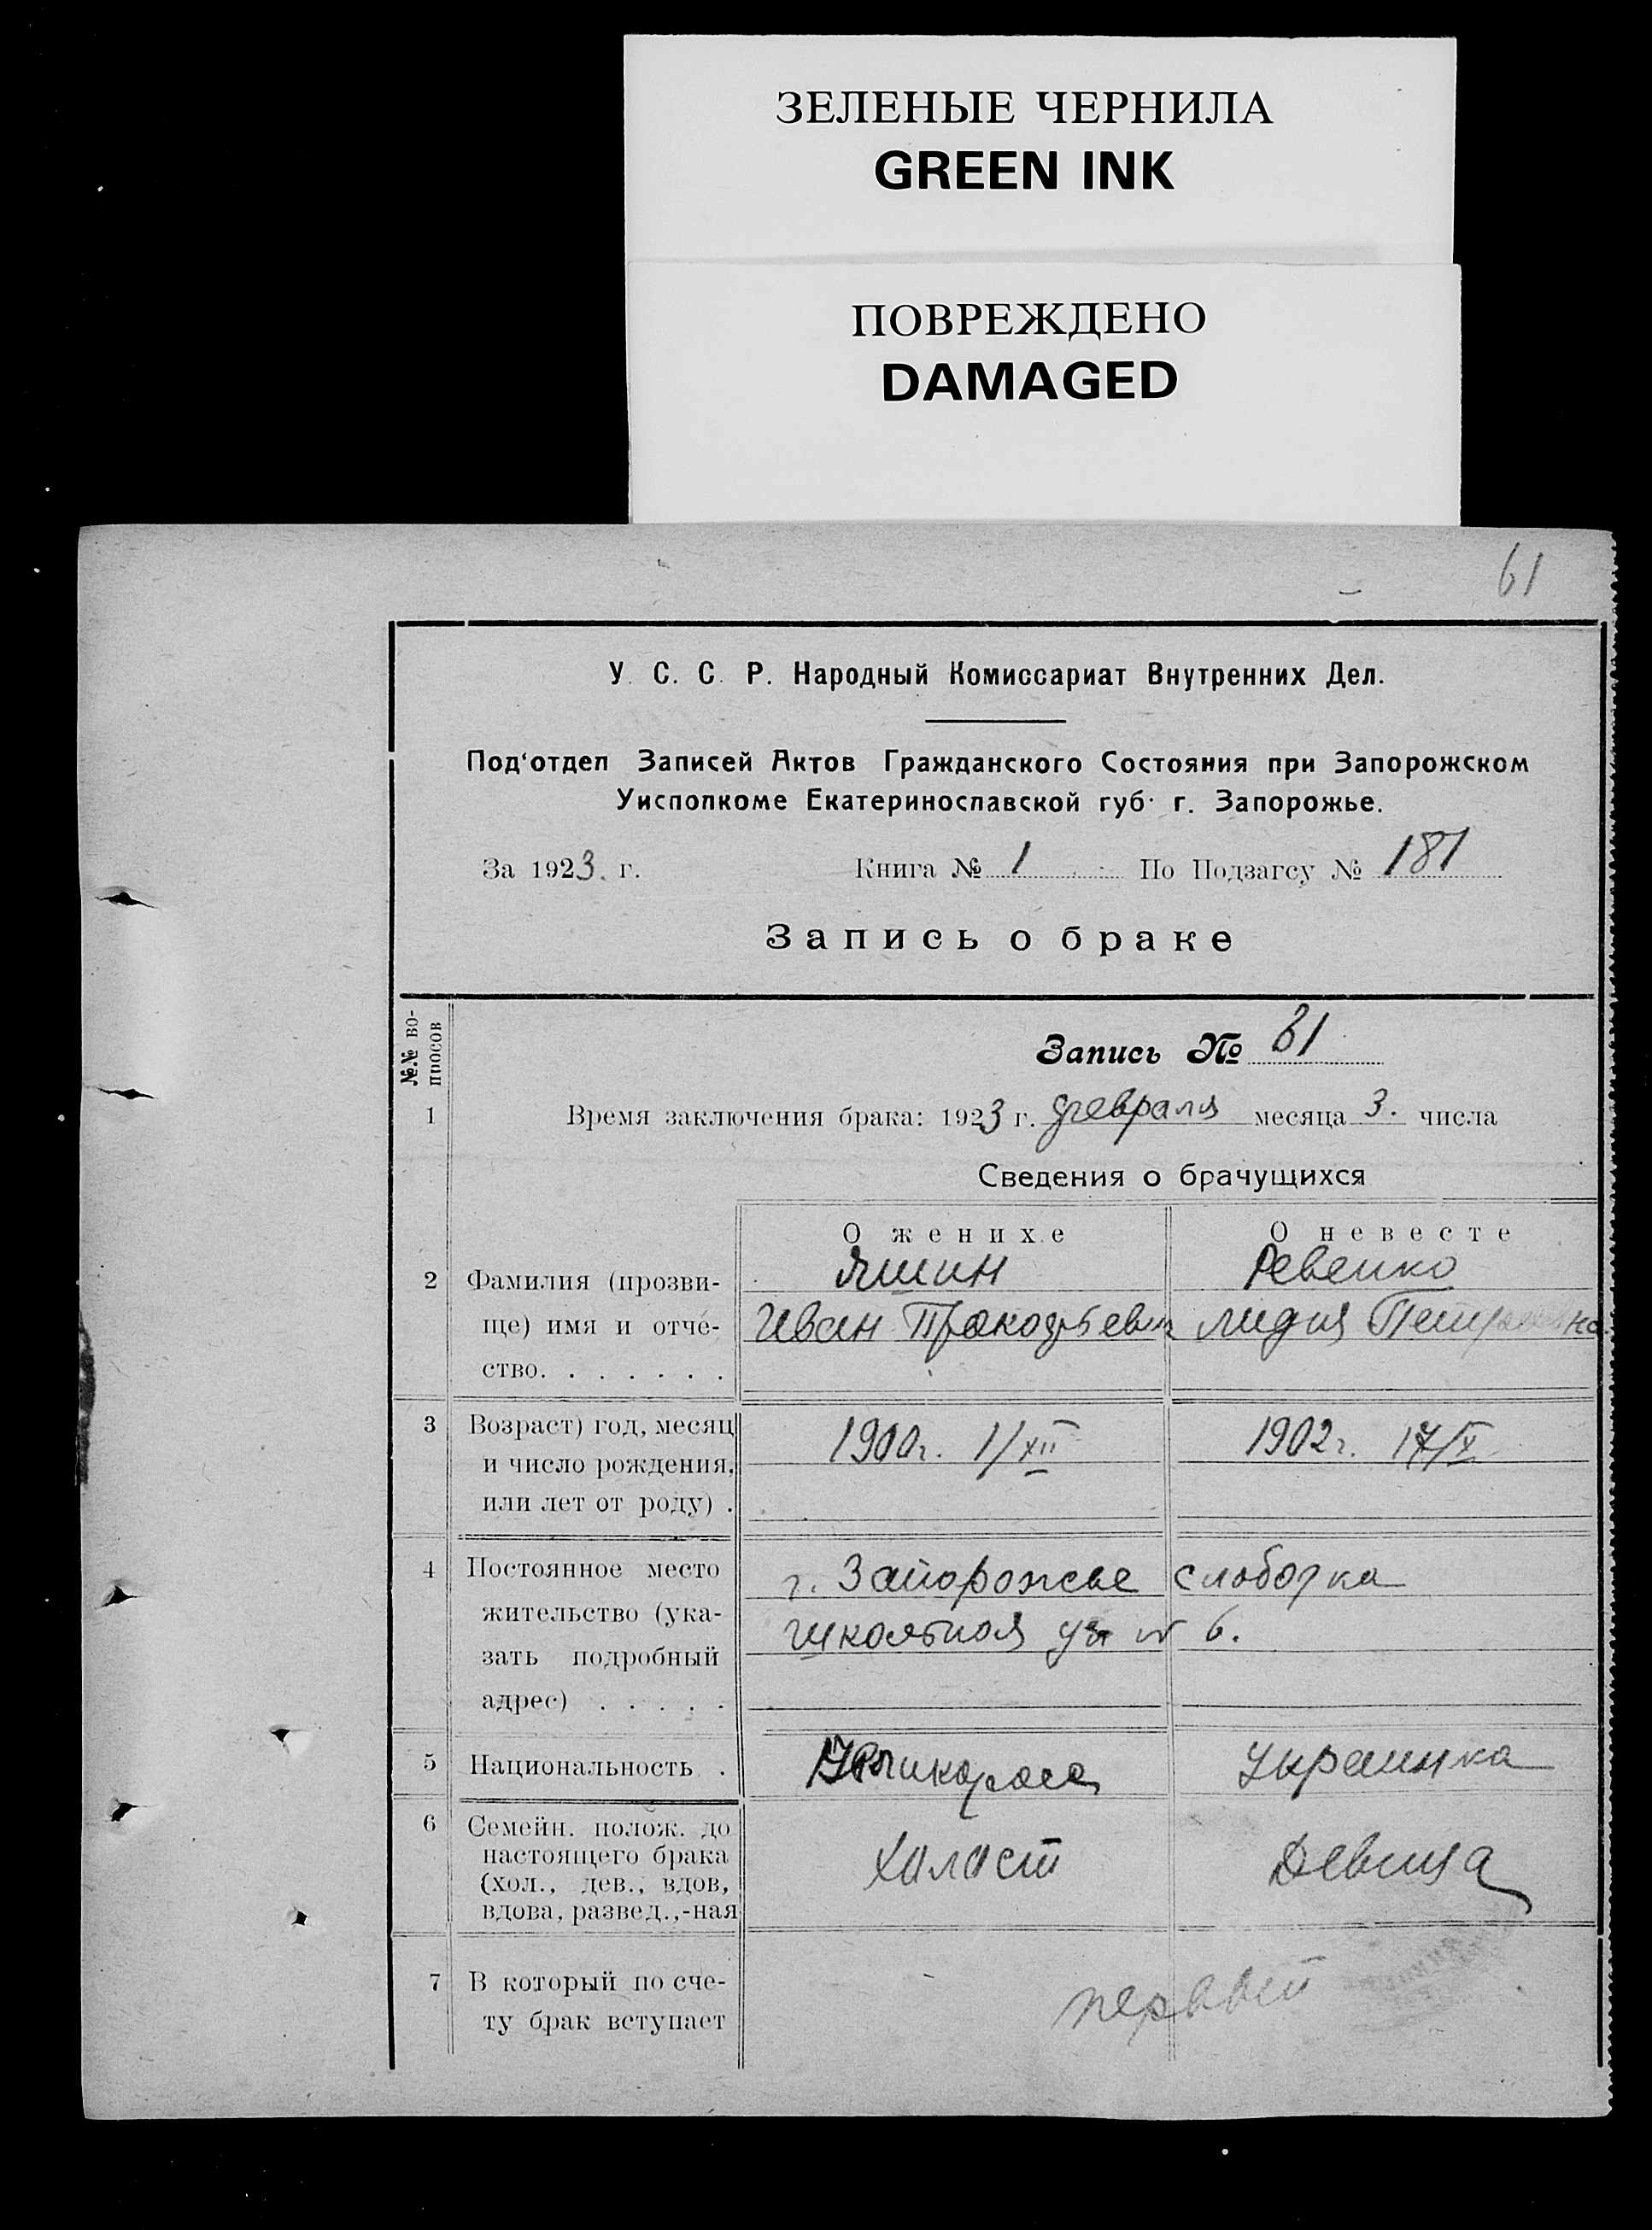 ЗЕЛЕНЫЕ ЧЕРНИЛА
GREEN INK
ПОВРЕЖДЕНО
DAMAGED
61
У. С. С. Р. Народный Комиссариат Внутренних Дел.
Под‘отдел Записей Актов Гражданского Состояния при Запорожском
Уисполкоме Екатеринославской губ. г. Запорожье.
За 1923 г. Книга № 1 По Подзагсу № 181
Запись о браке
№№ во-
просов
Запись № 61
1 Время заключения брака: 1923 г. февраля месяца 3. числа
Сведения о брачущихся
О женихе О невесте
Яшин Ревенко
2 Фамилия (прозви-
ще) имя и отче- Иван Прокофьевич Лидия
ство. . . . . . .
3 Возраст) год, месяц 1900г. 1/XII 1902г. 17/X
и число рождения,
или лет от роду) .
4 Постоянное место г. Запорожье слободка
жительство (ука- школьная ул № 6.
зать подробный
адрес) . . . . .
5 Национальность . Великоросс Украинка
6 Семейн. полож. до
настоящего брака Холост Девица
(хол., дев., вдов,
вдова, развед.,-ная
7 В который по сче- первый
ту брак вступает